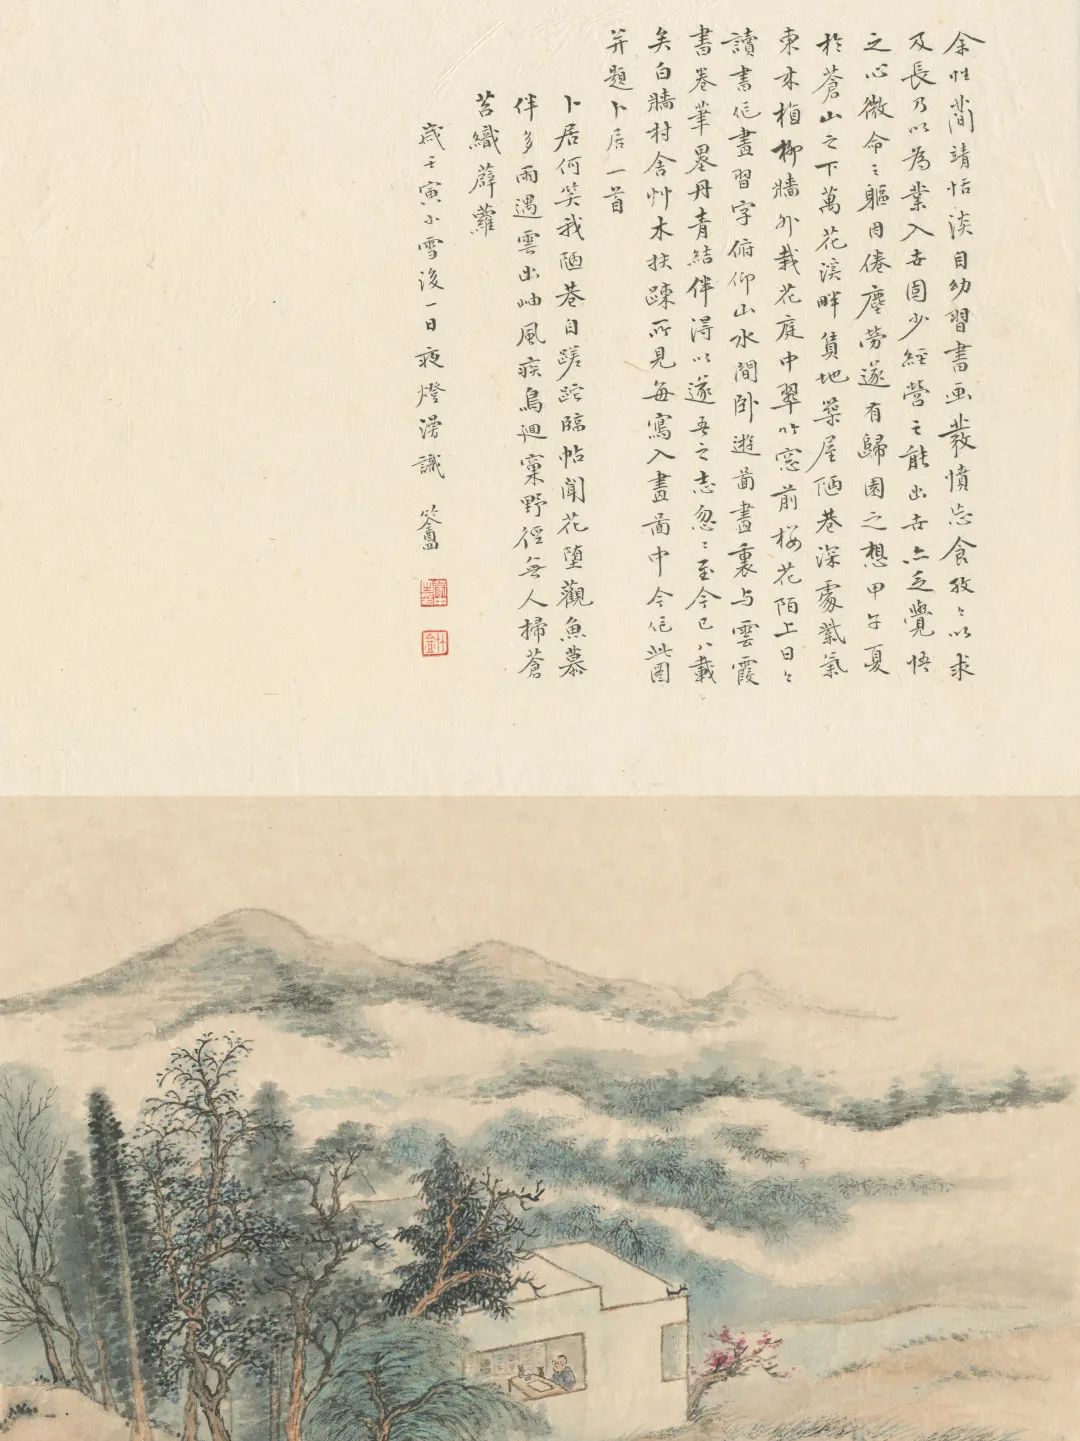 余性簡靖恬淡自幼習書画發憤忘食孜〻以求
及長乃以為業入世固少經營之能出世亦乏覺悟
之心微命之軀因倦塵勞遂有歸園之想甲午夏
於蒼山之下萬花溪畔賃地築屋陋巷深處紫氣
東來植柳牆外栽花庭中翠竹窓前桜花陌上日〻
讀書作畫習字俯仰山水間卧遊啚畫裏与雲霞
書卷筆墨丹青結伴淂以遂吾之志忽〻至今已八載
矣白牆村舍艸木扶踈所見每寫入畫啚中今作此圖
并題卜居一首
卜居何笑我陋巷自蹉跎臨帖聞花墮觀魚慕
伴多雨過雲出岫風疾鳥迴窠野徑無人掃蒼
苔織薜蘿
歲壬寅小雪後一日夜燈漫識